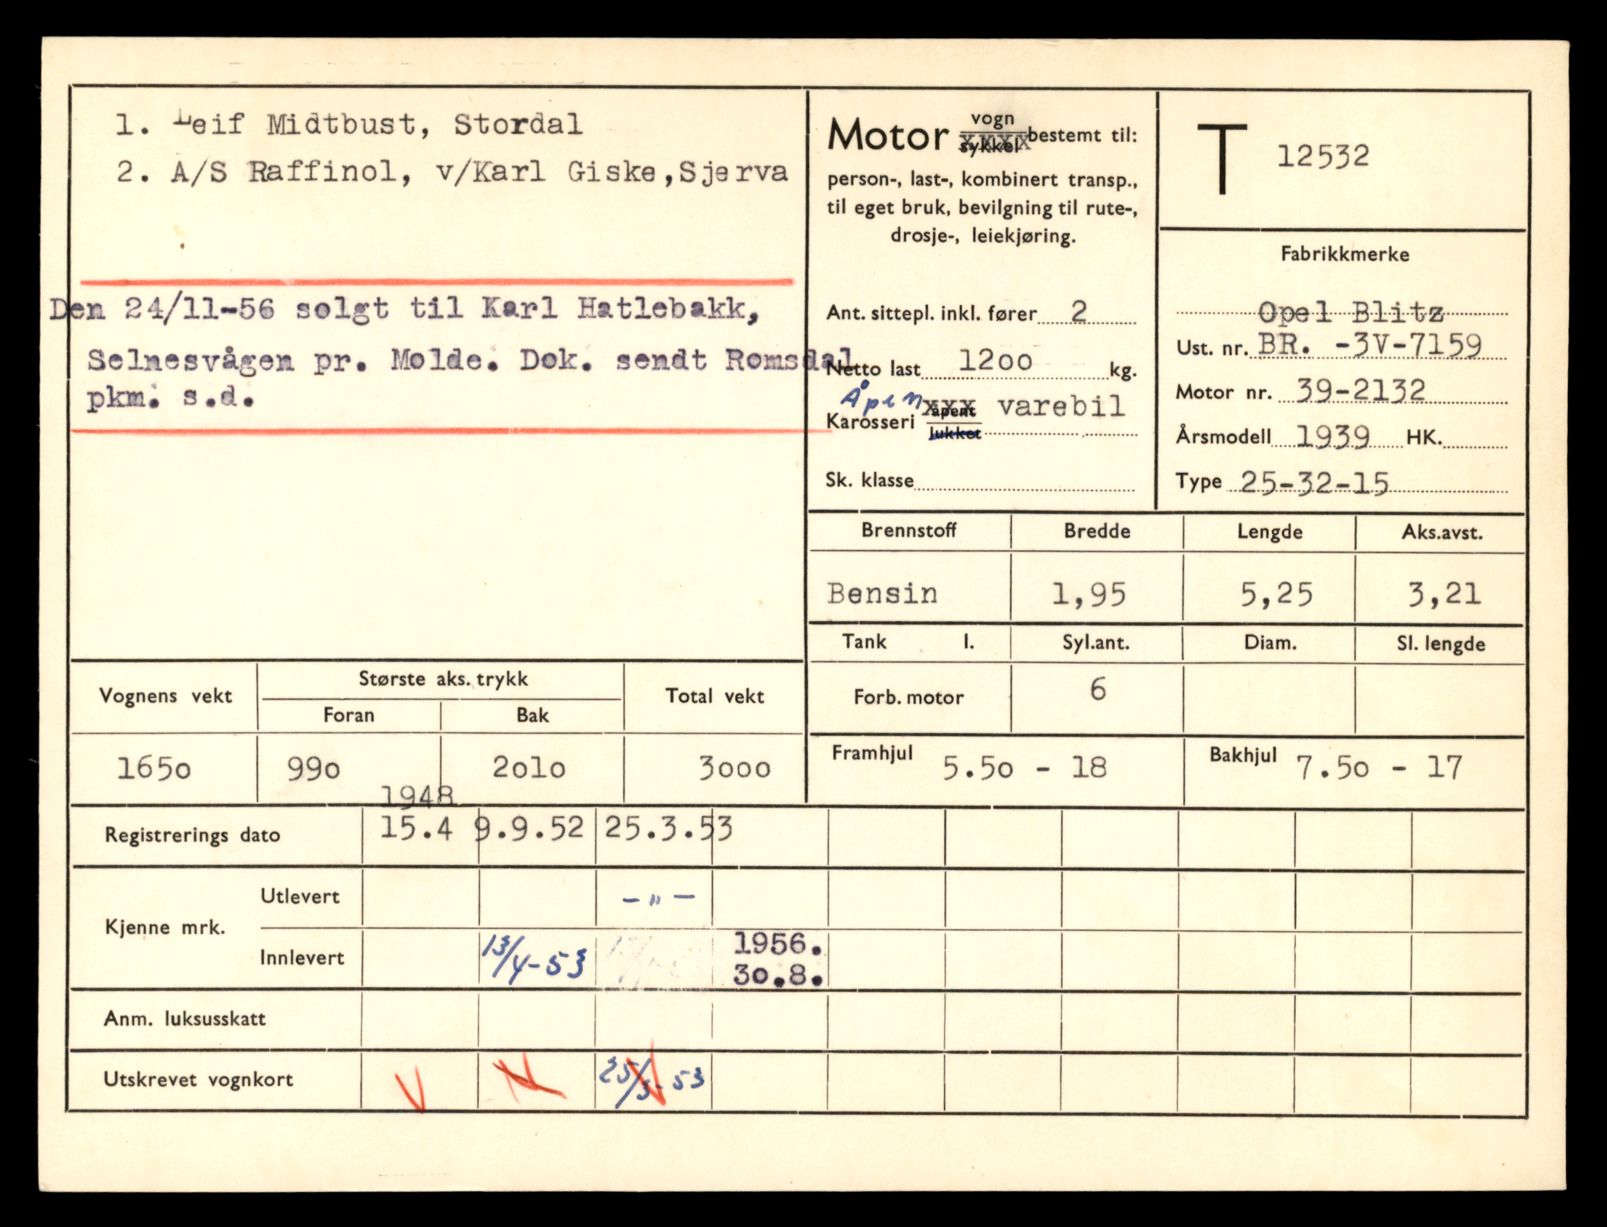 1. Leif Midtbust, Stordal
2. A/S Raffinol, v/Karl Giske,Sjerva
Den 24/11-56 solgt til Karl Hatlebakk,
Selnesvågen pr. Molde. Dok. sendt Romsdal
pkm. s.d.
Motor vogn sykkel bestemt til:
person-, last-, kombinert transp.,
til eget bruk, bevilgning til rute-,
drosje-, leiekjøring.
Ant. sittepl. inkl. fører 2
Netto last 1200 kg.
Åpen
Karosseri xxx åpent lukket varebil
Sk. klasse
T 12532
Fabrikkmerke
Opel Blitz
Ust. nr. BR. -3V-7159
Motor nr. 39-2132
Årsmodell 1939 HK.
Type 25-32-15
Brennstoff Bredde Lengde Aks.avst.
Bensin 1,95 5,25 3,21
Tank l. Syl.ant. Diam. Sl. lengde
Forb. motor 6
Framhjul 5.50 - 18 Bakhjul 7.50 - 17
Vognens vekt Største aks. trykk Total vekt
Foran Bak
1650 990 2010 3000
1948
Registrerings dato 15.4 9.9.52 25.3.53
Kjenne mrk. Utlevert - " -
Innlevert 13/4-53 1956.
30.8.
Anm. luksusskatt
Utskrevet vognkort V V 25/3-53 V